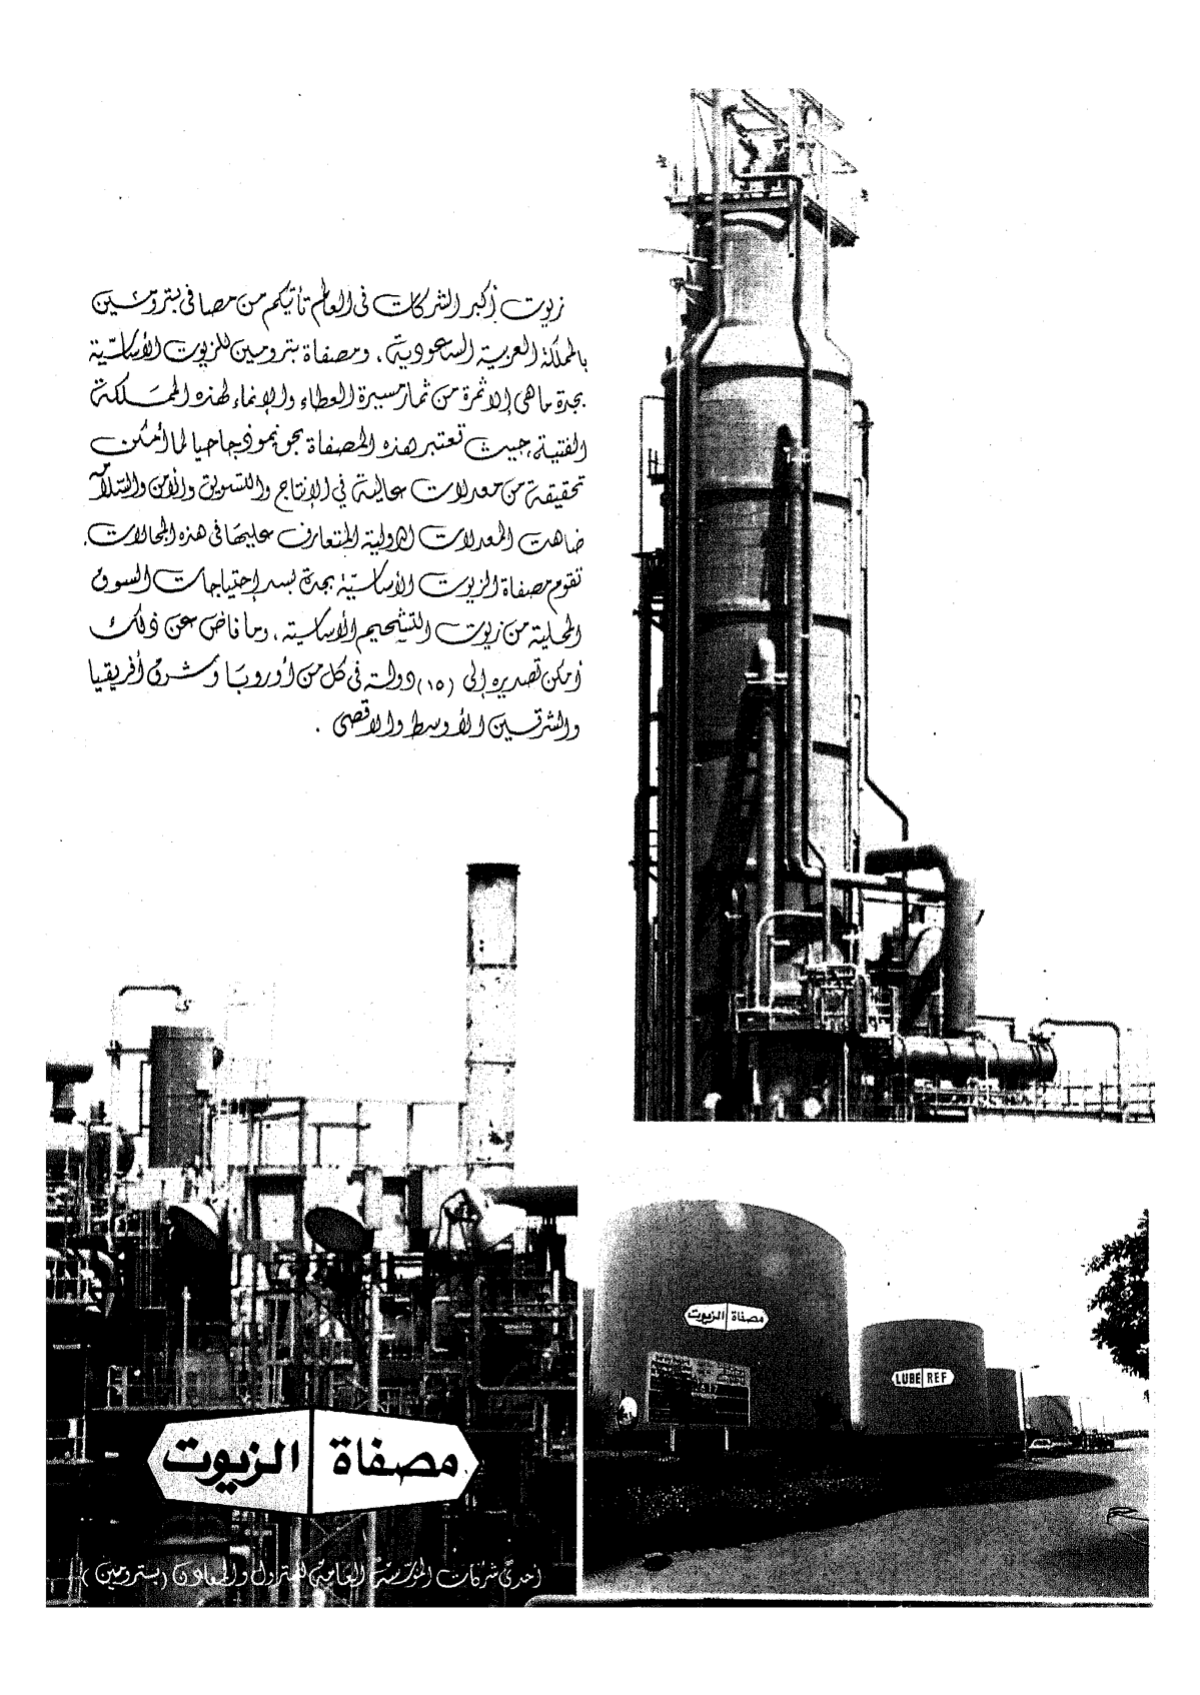 زيوت أكبر الشركات في العالم تأتيكم من مصافي بترومين
بالمملكة العربية السعودية ، ومصفاة بترومين للزيوت الأساسية
بجدة ما هي إلا ثمرة من ثمار مسيرة العطاء والإنماء لهذه المملكة
الفتية، حيث تعتبر هذه المصفاة بحق نموذجا حيا لما أمكن
تحقيقه من معدلات عالية في الإنتاج والتسويق والأمن والسلامة
ضاهت المعدلات الدولية المتعارف عليها في هذه المجالات.
تقوم مصفاة الزيوت الأساسية بجدة بسد إحتياجات السوق
المحلية من زيوت التشحيم الأساسية ، وما فاض عن ذلك
أمكن تصديره إلى (١٥) دولة في كل من أوروبا وشرق أفريقيا
والشرقين الأوسط والاقصى .
مصفاة الزيوت
LUBE REF
مصفاة الزيوت
احدى شركات المؤسسة العامة للبترول والمعادن (بترومين)